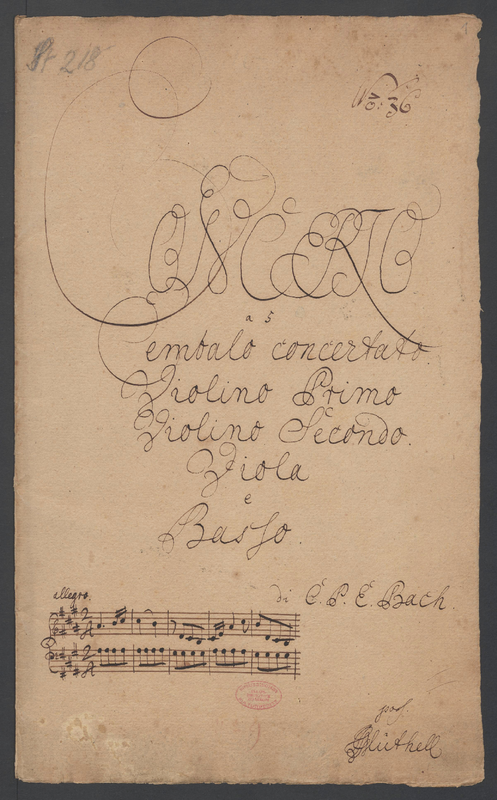 St 218
No: 36
CONCERTO
a 5
Cembalo concertato.
Violino Primo
Violino Secondo.
Viola
e
Basso.
di C. P. E. Bach.
allegro.
poss.
Müthell